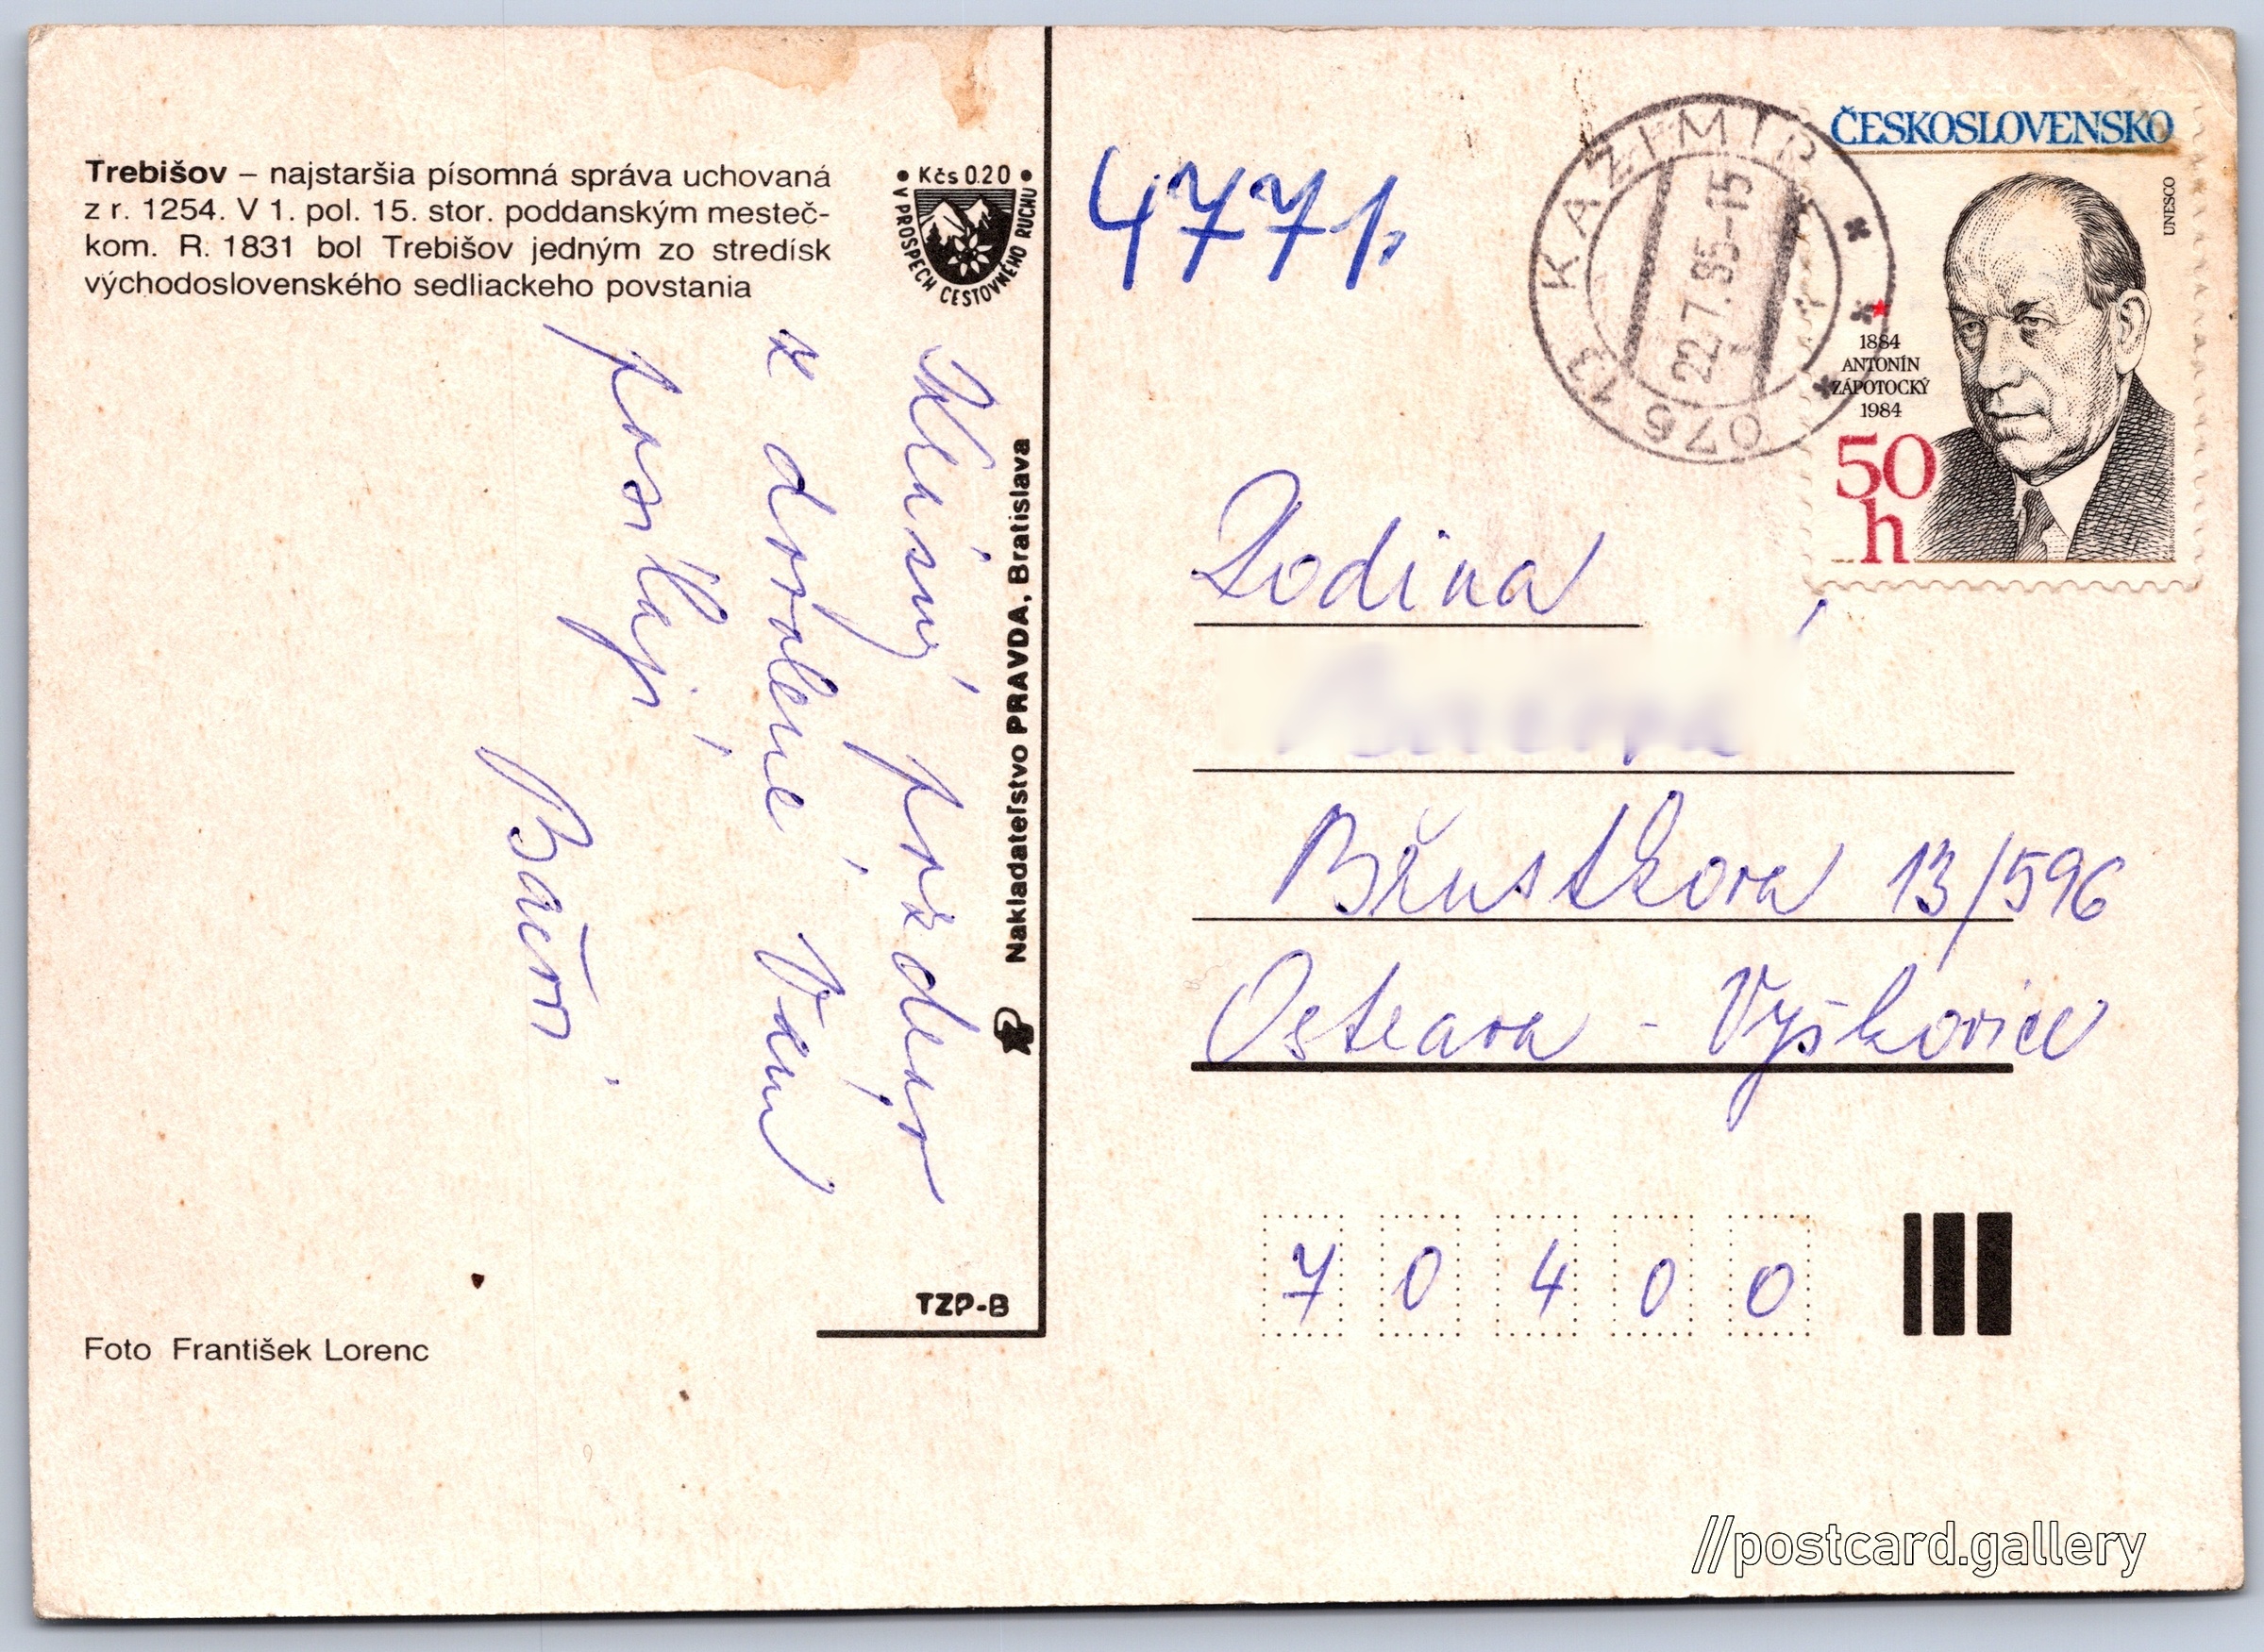 Trebišov – najstaršia písomná správa uchovaná
z r. 1254. V 1. pol. 15. stor. poddanskýmmesteč-
kom. R. 1831 bol Trebišov jedným zo stredísk
východoslovenského sedliackeho povstania
• Kčs 0.20 •
V PROSPECH CESTOVNÉHO RUCHU
Krásný pozdrav
z dovolené Vám
posílají
Nakladateľstvo PRAVDA, Bratislava
TZP-B
Foto František Lorenc
4771.
076 13 KAZIMÍR
22.7.85-15
ČESKOSLOVENSKO
UNESCO
1884
ANTONÍN
ZÁPOTOCKÝ
1984
50
h
Rodina
13/596
Ostrava - Vyškovice
70400
//postcard.gallery